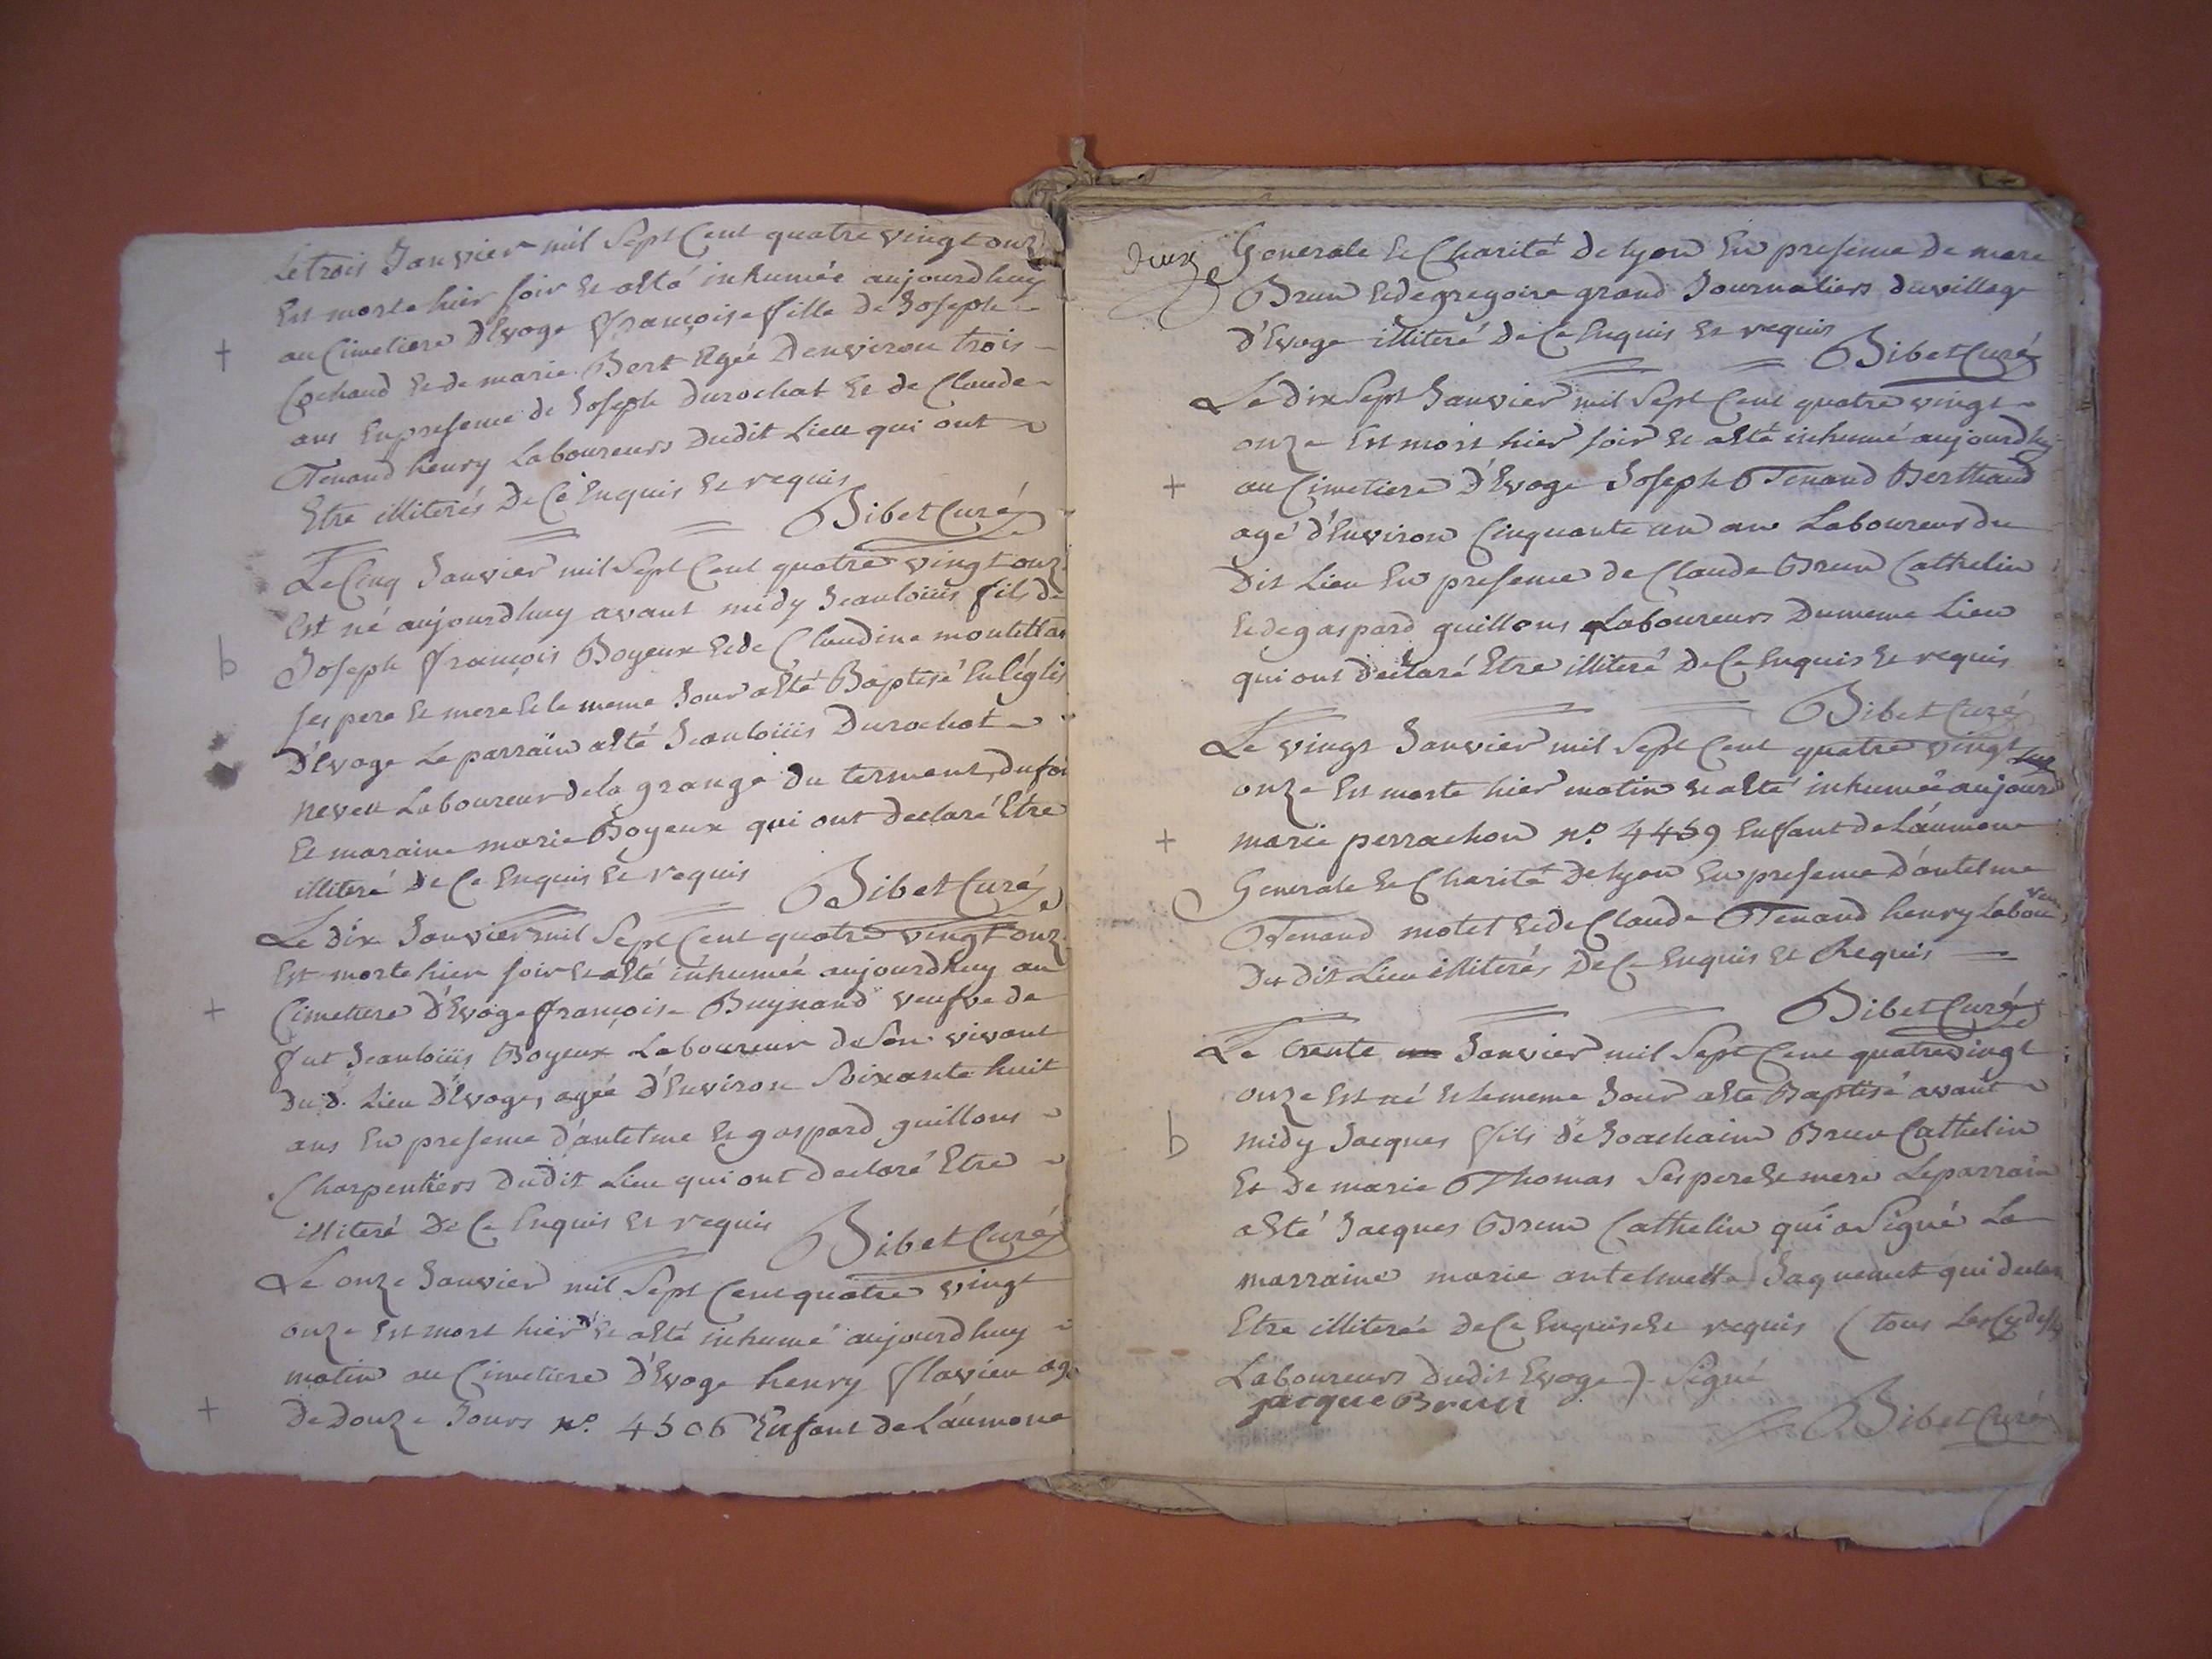 Le trois Janvier mil Sept Cent quatre vingt onz
Est morte hier soir Et aEté inhumée aujourdhuy
+ au Cimetiere D'Evoge françoise fille De Joseph
Cochaud Et de marie Bert Agée Denviron trois
ans En presence de Joseph Durochat Et de Claude
Tenand henry Laboureurs Dudit Lieu qui ont
Etre illiterés De Ce Enquis Et requis
Bibet Curé
Le Cinq Janvier mil Sept Cent quatre vingt onz
Est né aujourdhuy avant midy Jeanloüis fils de
b Joseph françois Boyeux Et de Claudine
ses pere Et mere Et le meme Jour aEté Baptisé En l'églis
D'Evoge Le parrain aEté Jeanloüis Durochat
neveu Laboureur de la grange du terment,
Et maraine marie Boyeux qui ont declaré Etre
illiteré De Ce Enquis Et requis
Bibet Curé
Le dix Janvier mil Sept Cent quatre vingt onz
Est morte hier soir Et aEté inhumée aujourdhuy au
+ Cimetiere D'Evoge françoise Buynand veufve de
fut Jeanloüis Boyeux Laboureur de Son vivant
du d. Lieu D'Evoge, agée d'Environ Soixante huit
ans En presence d'antelme Et gaspard guillons
Charpentiers Dudit Lieu qui ont declaré Etre
illiteré De Ce Enquis Et requis
Bibet Curé
Le onze Janvier mil Sept Cent quatre vingt
onze Est mort hier Et aEté inhumé aujourdhuy
matin au Cimetiere D'Evoge henry flavien age
+ De Douze Jours n.º 4506 Enfant de L'áumone
deux
Generale Et Charité de lyon En presence de
Brun Et de gregoire grand Journaliers du village
d'Evoge illiteré De Ce Enquis Et requis
Bibet Curé
Le dix Sept Janvier mil Sept Cent quatre vingt
onze Est mort hier soir Et aEté inhumé aujourdhuy
+ au Cimetiere D'Evoge Joseph Tenand Berthaud
agé d'Environ Cinquante un an Laboureur du
Dit Lieu En presence de Claude Brun Cathelin
Et de gaspard guillons Laboureurs Du meme Lieu
qui ont declaré Etre illiteré De Ce Enquis Et requis
Bibet Curé
Le vingt Janvier mil Sept Cent quatre vingt
onze Est morte hier matin Et aEté inhumée aujourd
+ marie perrachon n.º 4459 Enfant de L'áumone
Generale Et Charité De lyon En presence D'antelme
Tenand motet Et de Claude Tenand henry Laboureurs
Du dit Lieu illiterés De Ce Enquis Et Requis
Bibet Curé
Le trente Janvier mil Sept Cent quatre vingt
onze Est né Et le meme Jour aEté Baptisé avant
b midy Jacques fils de Joachaim Brun Cathelin
Et De marie Thomas Ses pere Et mere Le parrain
aEté Jacques Brun Cathelin qui a Signé La
marraine marie antelmette Jaquemet qui declar
Etre illiterée De Ce Enquise Et requis (tous Les Cy dess
Laboureurs Dudit Evoge) Signé
jacque Brun
Bibet Curé